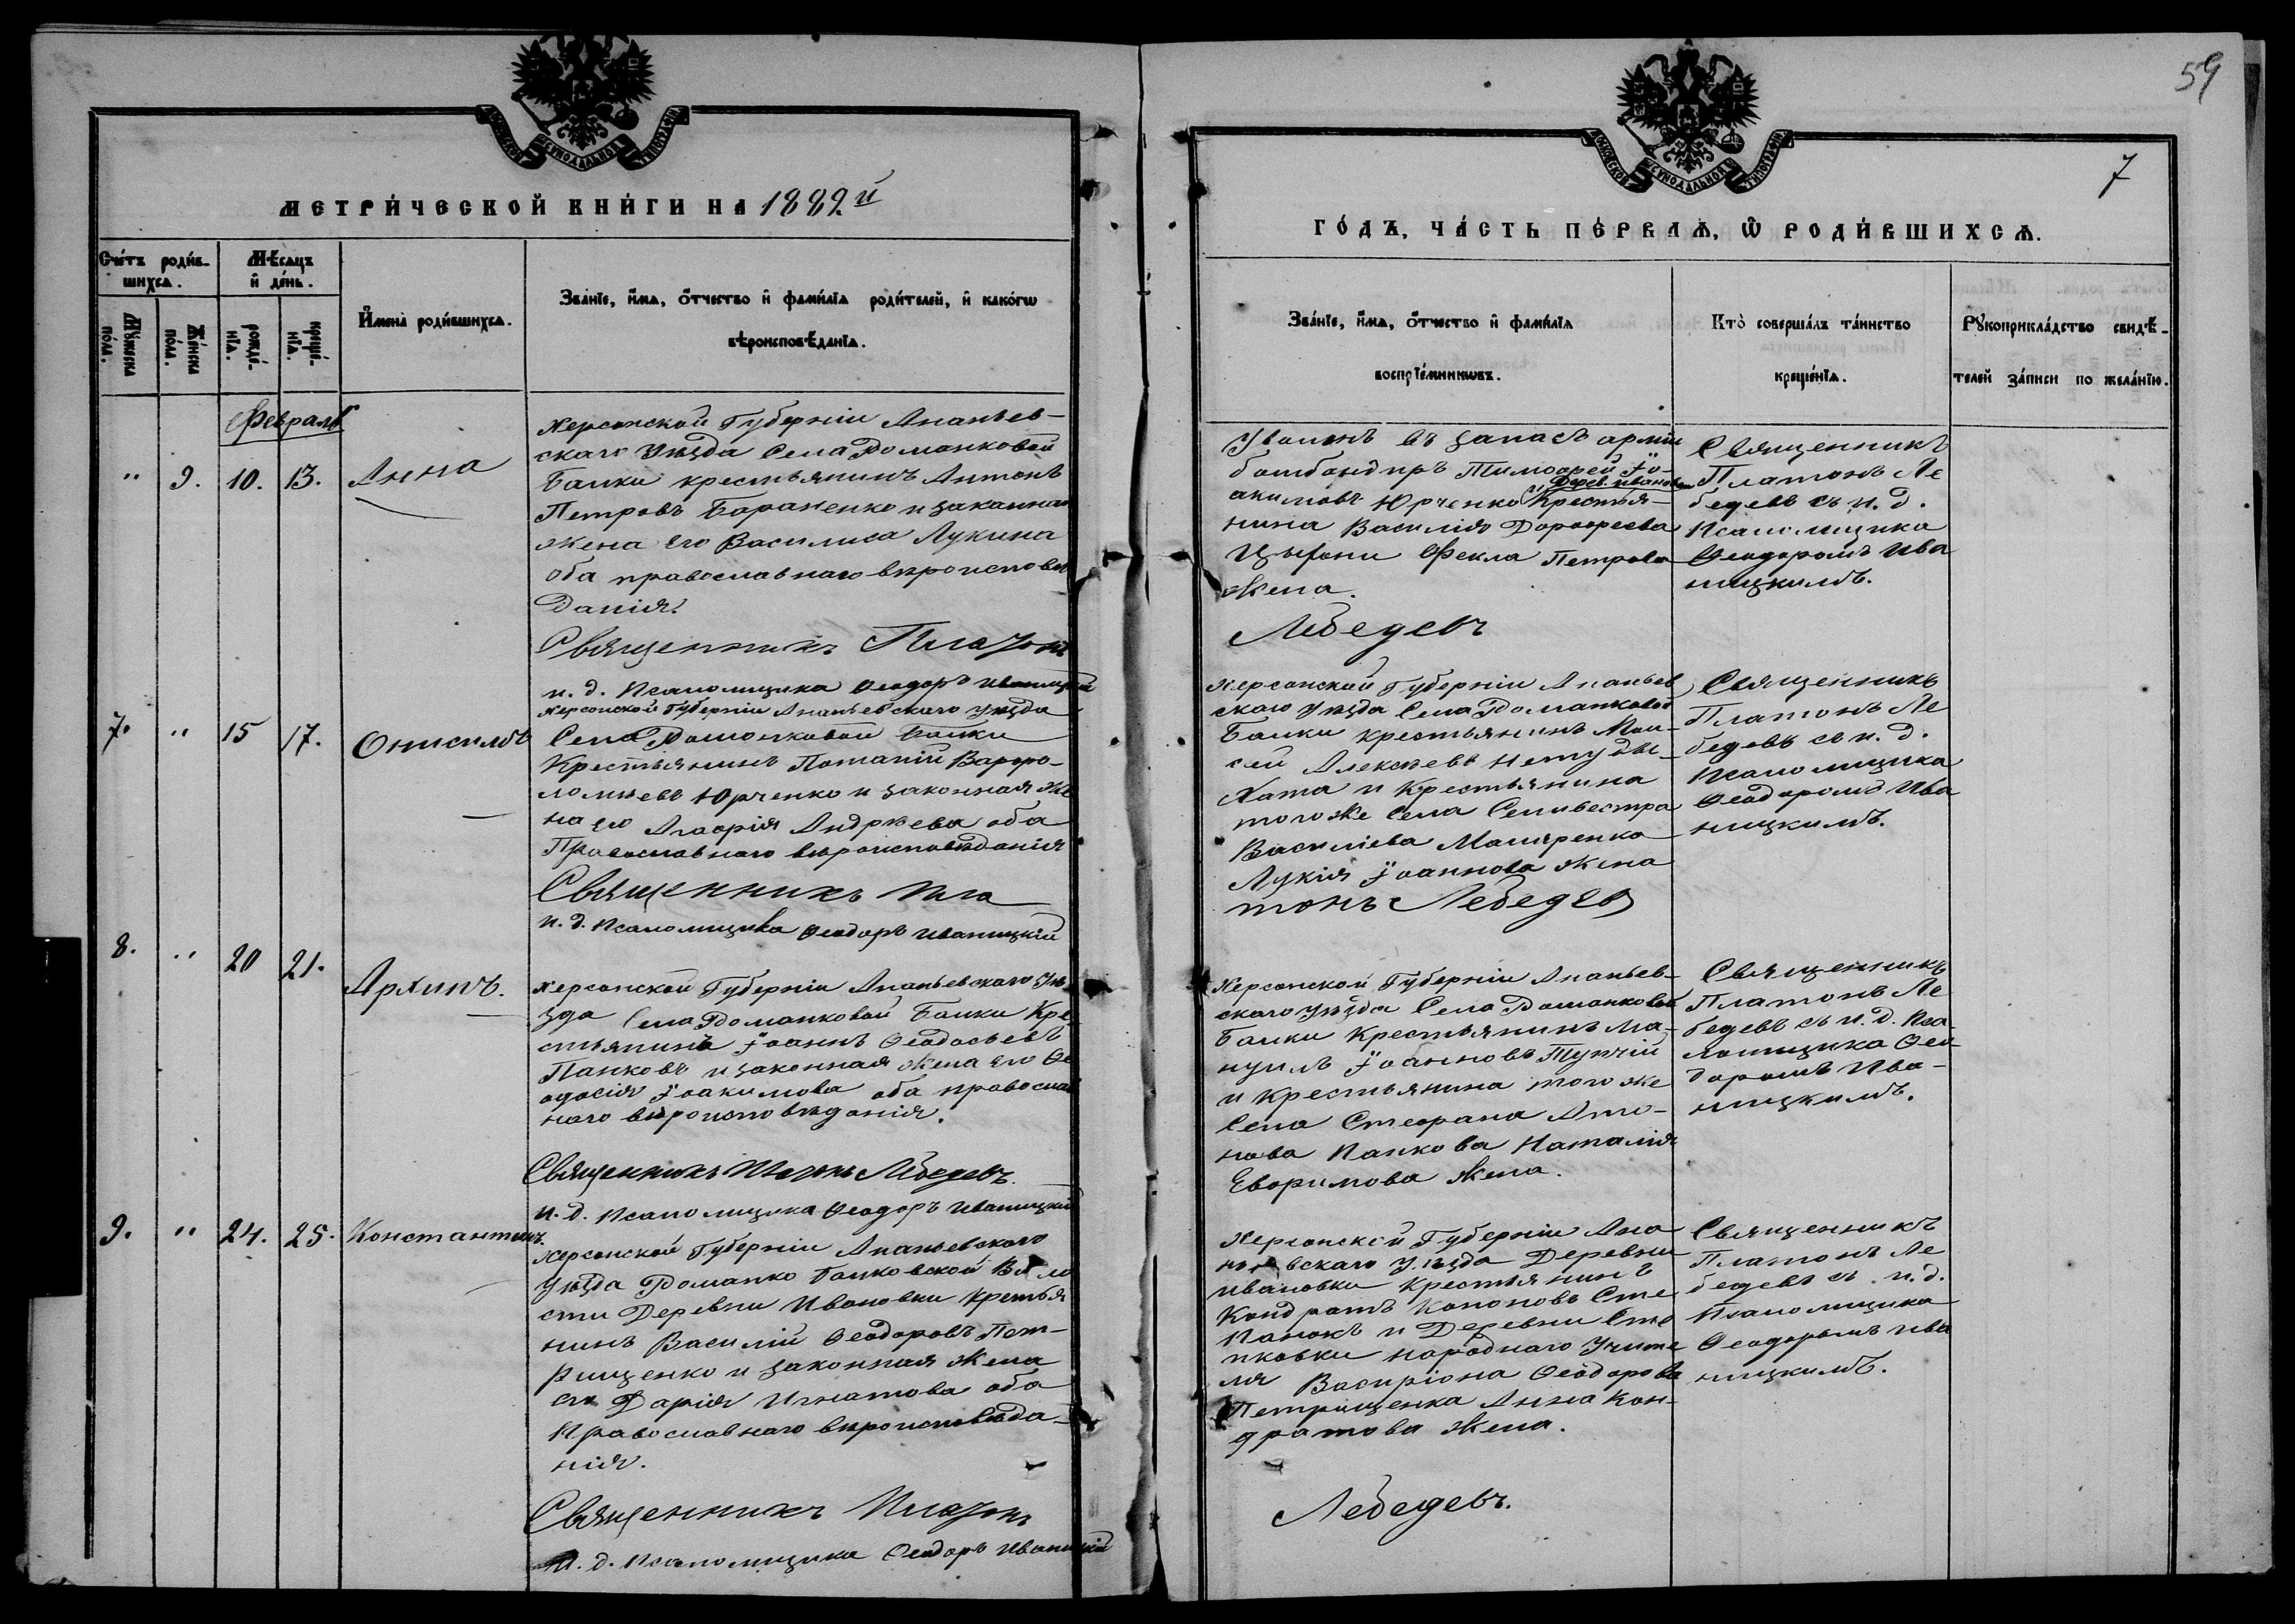 МЕТРИ́ЧЕСКОЙ КНИ́ГИ НА 1882й
Сче́тъ роди́в-
шихсѧ.
Мѣсѧцъ
и҆ де́нь.
Мꙋ́жеска
по́ла.
Же́нска
по́ла.
рожде́-
нїѧ.
креще́-
нїѧ.
И҆мена̀ роди́вшихсѧ.
Зва́нїе, и҆́мѧ, ѻ҆́тчество и҆ фами́лїѧ роди́телей, и҆ како́гѡ
вѣроисповѣ́данїѧ.
Февраль
" 9. 10. 13. Анна
Херсонской Губерніи Ананьев-
скаго Уѣзда Села Доманковой
Балки крестьянинъ Антонъ
Петровъ Бараненко и законная
жена его Василиса Лукина
оба православнаго вѣроисповѣ
данія.
Священникъ Платонъ
и. д. Псаломщика Ѳеодоръ Иваницкій
7. " 15 17. Онисимъ
Херсонской Губерніи Ананьевскаго уѣзда
Села Доманковой Балки
Крестьянинъ Потапій Варфо-
ломѣевъ Юрченко и законная же
на его Агафія Андреева оба
Православнаго вѣроисповѣданія
Священникъ Пла
и. д. Псаломщика Ѳеодоръ Иваницкій
8. " 20 21. Архипъ.
Херсонской Губерніи Ананьевскаго Уѣ
зда Села Доманковой Балки Кре
стьянинъ Іоаннъ Ѳеодосьевъ
Панковъ и законная жена его Ѳе
одосія Іоакимова оба православ
наго вѣроисповѣданія.
Священникъ Платонъ Лебедевъ.
и. д. Псаломщика Ѳеодоръ Иваницкій
9. " 24. 25. Константинъ.
Херсонской Губерніи Ананьевского
Уѣзда Доманко Балковской Воло
сти Деревни Ивановки крестья
нинъ Василій Ѳеодоровъ Пет-
рищенко и законная жена
его Дарія Игнатова оба
Православнаго вѣроисповѣда-
нія.
Священникъ Платонъ
и. д. Псаломщика Ѳеодоръ Иваницкій
59
7
ГО́ДЪ, ЧА́СТЬ ПЕ́РВАѦ, Ѡ҆ РОДИ́ВШИХСѦ.
Зва́нїе, и҆́мѧ, ѻ҆́тчество и҆ фами́лїѧ
воспрїе́мникѡвъ.
Кто̀ соверша́лъ та́инство
креще́нїѧ.
Рꙋкоприкла́дство свидѣ́-
телей за́писи по жела́нїю.
Уволенъ въ запасъ арміи
бомбандиръ Тимофей Іо-
акимовъ Юрченко и Дерев. Ивановки Крестья-
нина Василія Дорофеева
Фекла Петрова
жена.
Лебедевъ
Священникъ
Платонъ Ле
бедевъ съ и. д.
Псаломщика
Ѳеодоромъ Ива
ницкимъ.
Херсонской Губерніи Ананьев
скаго Уѣзда Села Доманковой
Балки крестьянинъ Мои-
сей Алексѣевъ Нетуды-
Хата и Крестьянина
того же Села Селивестра
Василіева Маляренка
Лукія Іоаннова жена
тонъ Лебедевъ
Священникъ
Платонъ Ле
бедевъ съ и. д.
Псаломщика
Ѳеодоромъ Ива
ницкимъ.
Херсонской Губерніи Ананьев-
скаго Уѣзда Села Доманковой
Балки Крестьянинъ Ма-
нуилъ Іоанновъ Тупчій
и Крестьянина того же
Села Стефана
Панкова Наталія
Евфимова жена.
Священникъ
Платонъ Ле
бедевъ съ и. д. Пса-
ломщика Ѳео-
доромъ Ива-
ницкимъ.
Херсонской Губерніи Ана
ньевскаго Уѣзда Деревни
Ивановки Крестьянинъ
Кондратъ Кононовъ Сте
панюкъ и Деревни Сте
пковки народнаго Учите
ля Василіона Ѳеодорова
Петрищенка Анна Кон-
дратова жена.
Лебедевъ.
Священникъ
Платонъ Ле
бедевъ съ и. д.
Псаломщика
Ѳеодорымъ Ива
ницкимъ.